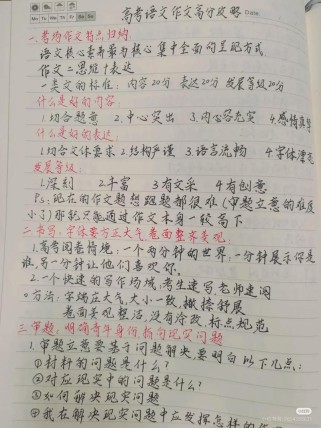 高考语文作文高分攻略 Date.
Mo Tu We Th Fr Sa Su
一.考场作文特点归纳:
语文核心素养最为核心 集中全面的呈现方式
作文=思维+表达
一类文的标准: 内容20分 表达20分 发展等级20分
什么是好的内容:
1.切合题意 2.中心突出 3.内容充实 4.感情真
什么是好的表达:
1.切合文体要求 2.结构严谨 3.语言流畅 4.字体漂
发展等级:
1.深刻 2.丰富 3.有文采 4.有创意
Ps:现在的作文题想跑题都很难(审题立意的难度
小)那就只能通过作文本身一较高下
二.书写:字体要方正大气,卷面整齐美观:
1.高考阅卷情境:一个两分钟的世界,一分钟展示你是
谁,另一分钟让他们喜欢你。
2.一个快速的写作场域,考生速写,老师速阅
方法:字端庄大气,大小一致,撇捺舒展
卷面美观整洁,没有涂改,标点规范
三.审题:明确青年身份,指向现实问题
1.审题立意要基于问题解决要明白以下几点:
①材料的问题是什么?
②对应现实中的问题是什么?
③如何解决现实问题
④我在解决现实问题中应发挥怎样的